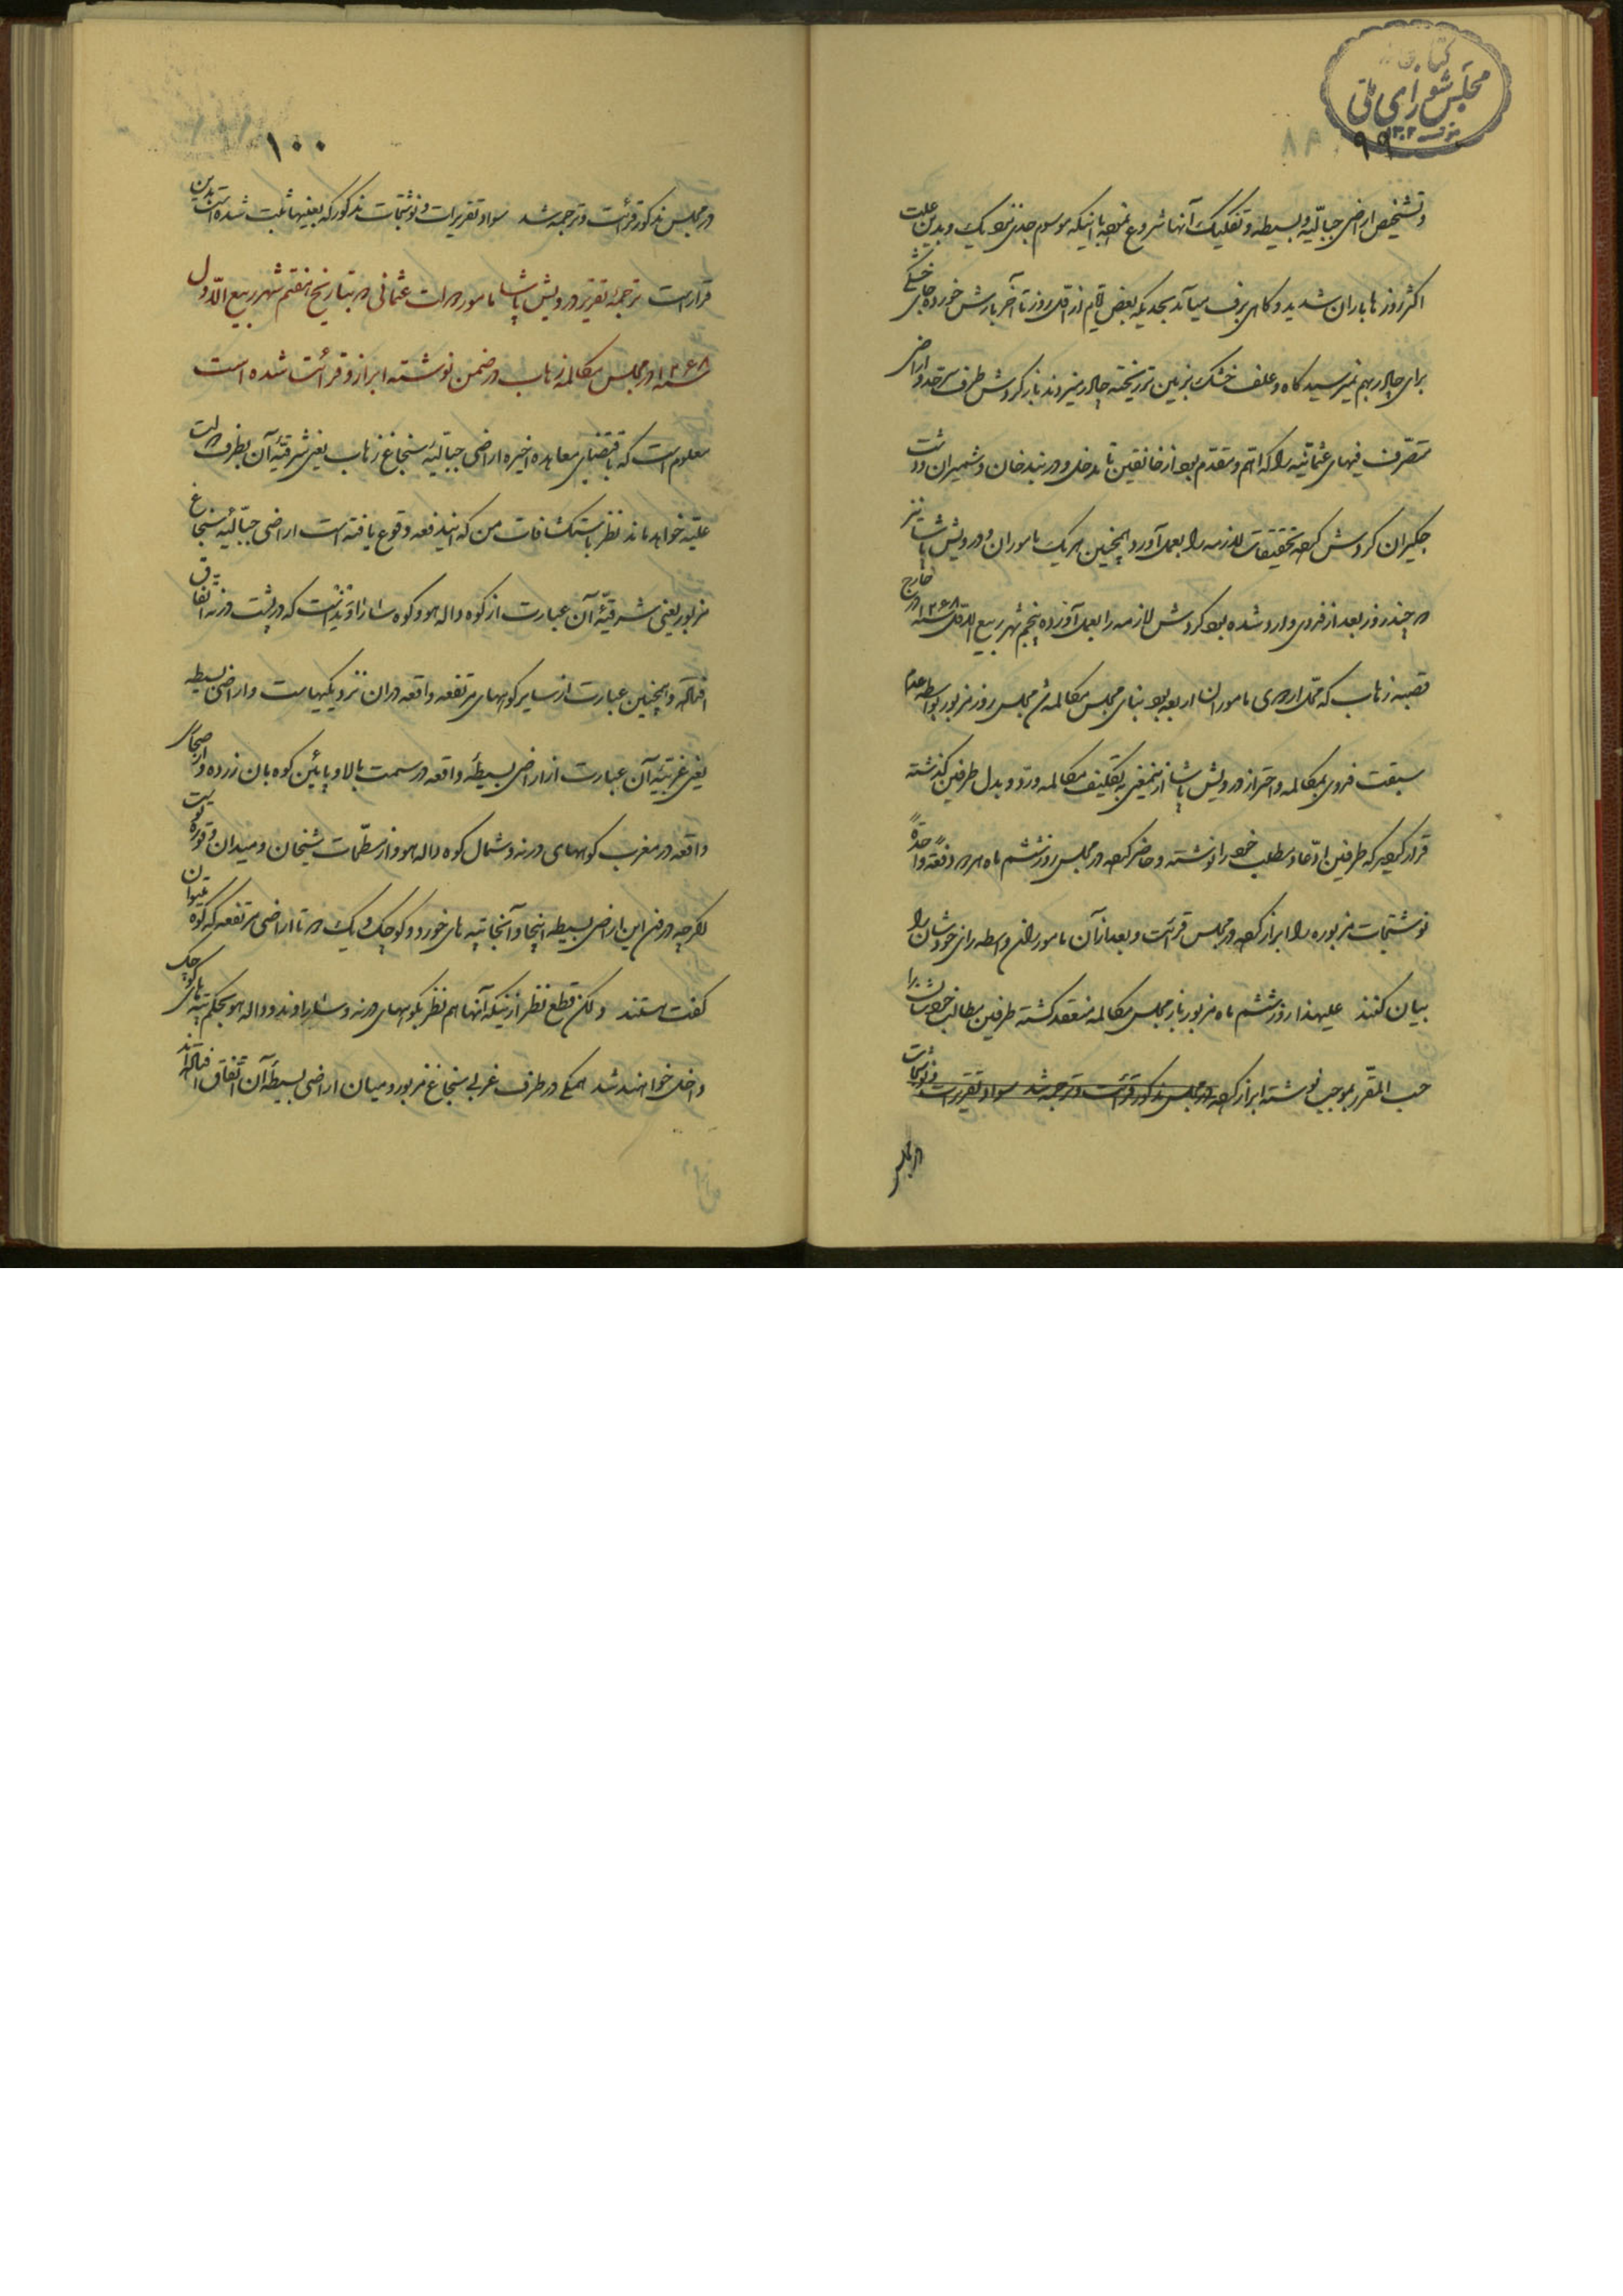 کتابخانه
مجلس شورای ملی
۹۹
و تشخیص اراضی جبالیه و بسیطه و تفکیک آنها شروع نمود با اینکه موسوم جدی نزدیک و بدین علت
اکثر روزها باران شدید و گاهی برف میآمد بحدیکه بعض ایام از اول روز تا آخر بارش خورده جای خشکی
برای چادر بهم نمیرسید کاه و علف خشک بزمین تر ریخته چادر میزدند باز گردش طرف سرحد و اراضی
متصرف فیهای عثمانیه را که اهم و مقدم بود از خانقین تا مدخل دربندخان و شمیران و دشت
جگیران گردش کرده تحقیقات لازمه را بعمل آورد همچنین هر یک ماموران و درویش پاشا نیز
در چند روز بعد از فردی وارد شده بود گردش لازمه را بعمل آورده پنجم شهر ربیع الاول سنه ۱۲۶۸ در خارج
قصبه زهاب که محل اردوی ماموران اربعه بود بنای مجلس مکالمه شد مجلس روز مزبور بواسطه عدم
سبقت فردی بمکالمه و احتراز درویش پاشا ازینمعنی به تکلیف مکالمه و رد و بدل طرفین گذشته
قرار گیر که طرفین ادعا و مطلب خود را نوشته و حاضر کرده در مجلس روز ششم ماه هر دو دفعةً واحدةً
نوشتجات مزبوره را ابراز کرده در مجلس قرائت و بعد از آن ماموران واسطه رای خودشان را
بیان کنند علیهذا روز ششم ماه مزبور باز مجلس مکالمه منعقد گشته طرفین مطالب خودشان را
حسب المقرر بموجب نوشته ابراز کرده در مجلس مذکور قرائت و ترجمه شد سواد تقریرات و نوشتجات
در مجلس
۱۰۰
در مجلس مذکور قرائت و ترجمه شد سواد تقریرات و نوشتجات مذکور که بعینها ثبت شده است بدین
قرار است ترجمه تقریر درویش پاشا مامور دولت عثمانی در بتاریخ هفتم شهر ربیع الاول
سنه ۱۲۶۸ در مجلس مکالمه زهاب در ضمن نوشته ابراز و قرائت شده است
معلوم است که باقتضای معاهده اخیره اراضی جبالیه سنجاغ زهاب یعنی شرقیه آن بطرف دولت
علیه خواهد ماند نظر باستکشافات من که ایندفعه وقوع یافته است اراضی جبالیه سنجاغ
مزبور یعنی شرقیه آن عبارت از کوه داله هو و کوه شاراویدنست که در پشت درنه اتفاق
افتاده و همچنین عبارت از سایر کوههای مرتفعه واقعه در ان نزدیکیهاست و اراضی بسیطه
یعنی غربیه آن عبارت از اراضی بسیطه واقعه در سمت بالا و پایین کوه بان زرده و اراضی
واقعه در مغرب کوههای درنه و شمال کوه داله هو و از مسطحات شیخان و میدان و قوره تو است
اگر چه در فن این اراضی بسیطه اینجا و آنجا تپه های خورد و کوچک و یک دو تا اراضی مرتفعه که کوه میتوان
گفت هستند ولکن قطع نظر از اینکه آنها هم نظر بکوههای درنه و شاراوند و داله هو بحکم تپه های کوچک
داخل خواهند شد همگی در طرف غربی سنجاغ مزبور و میان اراضی بسیطه آن اتفاق افتاده اند